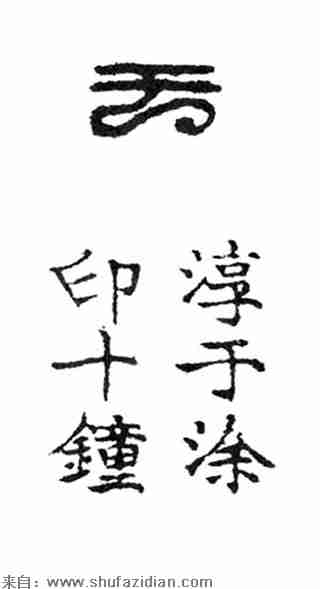 于
淳于涂
印十鐘
来自：www.shufazidian.com